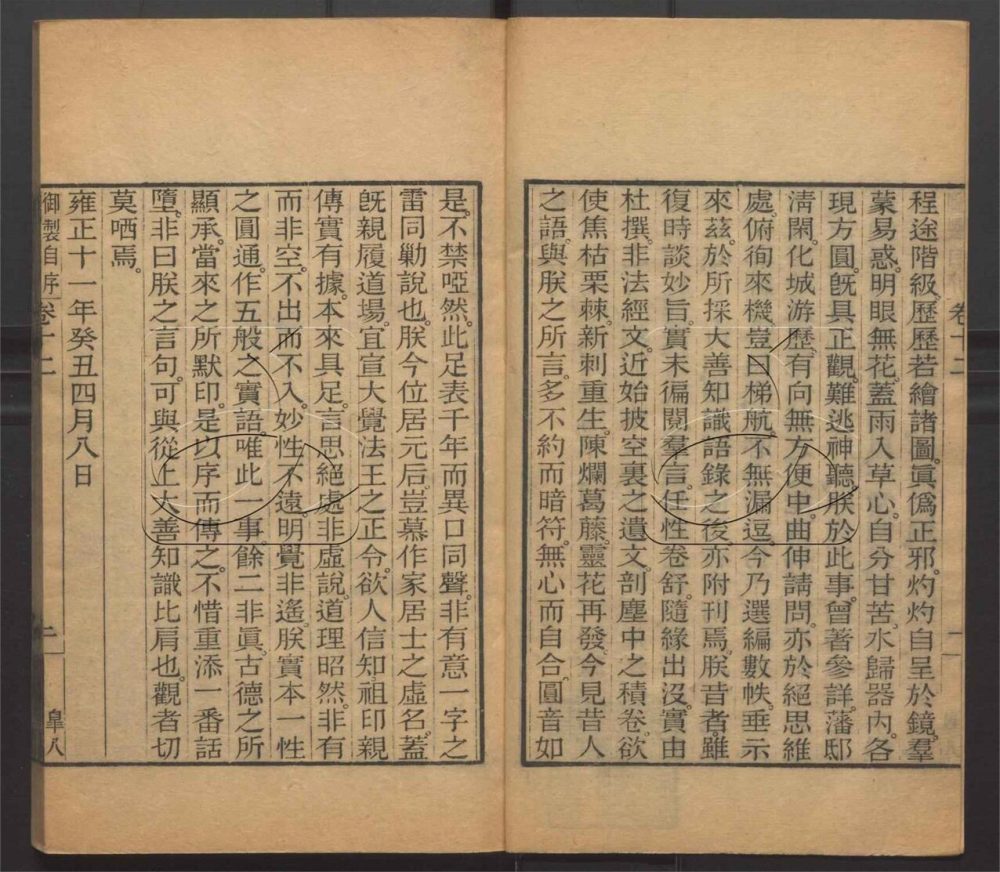 卷十二
一
程途階級。歷歷若繪諸圖。眞僞正邪。灼灼自呈於鏡。羣
蒙易惑。明眼無花。蓋雨入草心。自分甘苦。水歸器內。各
現方圓。旣具正觀。難逃神聽。朕於此事。曾著參詳。藩邸
淸閑。化城游歷。有向無方便中。曲伸請問。亦於絕思維
處。俯徇來機。豈曰梯航。不無漏逗。今乃選編數帙。垂示
來茲。於所採大善知識語錄之後。亦附刊焉。朕昔者。雖
復時談妙旨。實未徧閱羣言。任性卷舒。隨緣出沒。實由
杜撰。非法經文。近始披空裏之遺文。剖塵中之積卷。欲
使焦枯栗棘。新刺重生。陳爛葛藤。靈花再發。今見昔人
之語。與朕之所言。多不約而暗符。無心而自合。圓音如
是。不禁啞然。此足表千年而異口同聲。非有意一字之
雷同勦說也。朕今位居元后。豈慕作家居士之虛名。蓋
旣親履道場。宜宣大覺法王之正令。欲人信知祖印親
傳。實有據。本來具足。言思絕處非虛說。道理昭然。非有
而非空。不出而不入。妙性不遠。明覺非遙。朕實本一性
之圓通。作五般之實語。唯此一事。餘二非眞。古德之所
顯承。當來之所默印。是以序而傳之。不惜重添一番話
墮。非曰朕之言句。可與從上大善知識比肩也。觀者切
莫哂焉。
雍正十一年癸丑四月八日
御製自序 卷十二
二
皐八